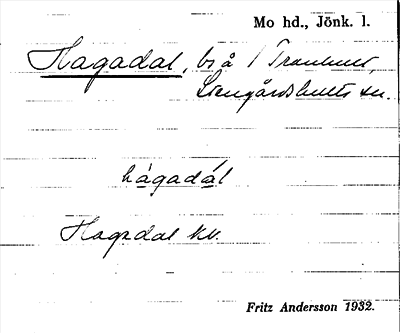 Mo hd., Jönk. l.
Hagadal, bs å
Stengårdshults sn.
hagadal
Hagadal kk.
Fritz Andersson 1932.